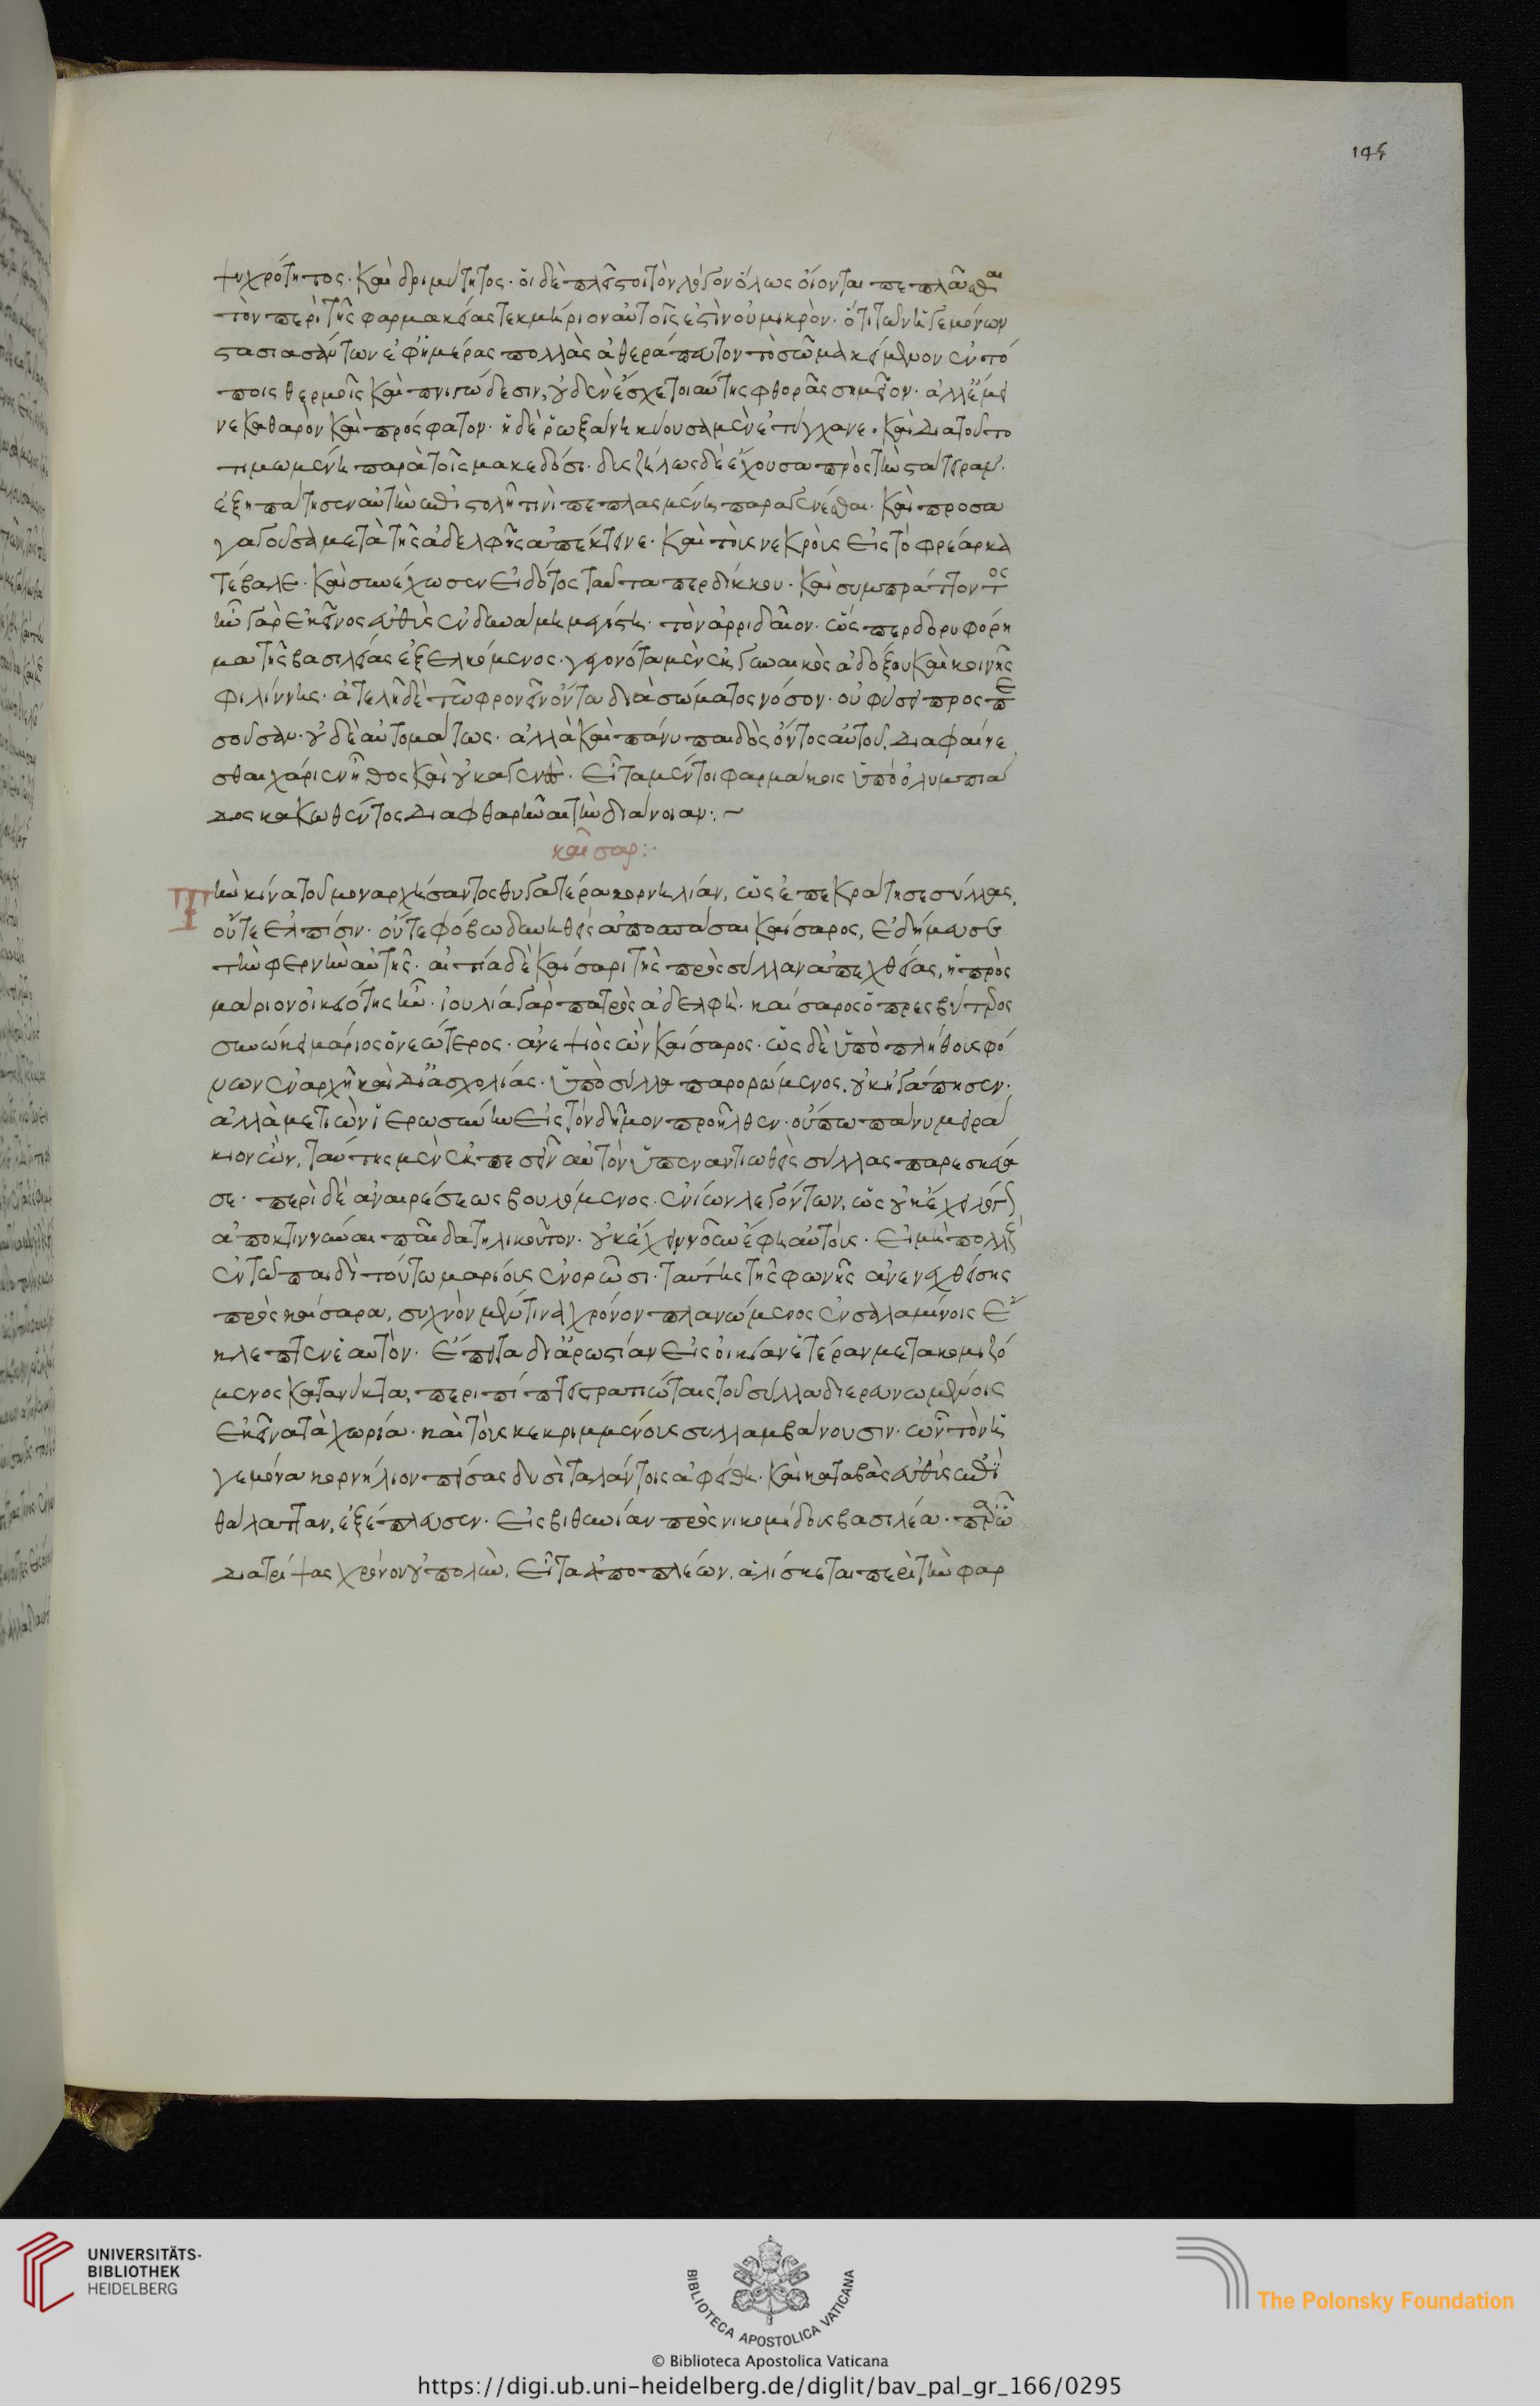 145
ψυχρότητος· καὶ δριμύτητος· οἱ δὲ πλεῖστοι τὸν λόγον ὅλως οἴονται πεπλᾶσθαι
τὸν περὶ τῆς φαρμακείας τεκμήριον αὐτοῖς ἐστὶν οὐ μικρὸν· ὅτι τῶν ἡγεμόνων
στασιασάντων ἐφ' ἡμέρας πολλὰς ἀθεράπευτον τὸ σῶμα κείμενον ἐν τό
ποις θερμοῖς καὶ πνιγώδεσιν, οὐδὲν ἔσχε τοιαύτης φθορᾶς σημεῖον· ἀλλ' ἔμει
νε καθαρὸν καὶ πρόσφατον· ἡ δὲ ῥωξάνη κύουσα μὲν ἐτύγχανε· καὶ διατοῦτο
τιμωμένη παρὰ τοῖς μακεδόσι· δυσζήλως δὲ ἔχουσα πρὸς τὴν στάτειραν·
ἐξηπάτησεν αὐτὴν ἐπιστολῇ τινὶ πεπλασμένῃ παραγενέσθαι· καὶ προσα
γαγοῦσα μετὰ τῆς ἀδελφῆς ἀπέκτεινε· καὶ τοὺς νεκροὺς εἰς τὸ φρέαρ κα
τέβαλε· καὶ συνέχωσεν εἰδότος ταῦτα περδίκκου· καὶ συμπράττοντος
ἦν γὰρ ἐκεῖνος εὐθὺς ἐν δυνάμει μεγίστῃ· τὸν ἀρριδαῖον· ὥσπερ δορυφόρη
μα τῆς βασιλείας ἐξελκόμενος· γεγονότα μὲν ἐκ γυναικὸς ἀδόξου καὶ κοινῆς
φιλίννης· ἀτελῆ δὲ τῷ φρονεῖν ὄντα διὰ σώματος νόσον· οὐ φύσει προσπε
σοῦσαν· οὐδὲ αὐτομάτως· ἀλλὰ καὶ πάνυ παιδὸς ὄντος αὐτοῦ, διαφαίνε
σθαι χάριεν ἦθος καὶ οὐκ ἀγεννὲς· εἶτα μέντοι φαρμάκοις ὑπὸ ὀλυμπιά
δος κακωθέντος διαφθαρῆναι τὴν διάνοιαν:~
καῖσαρ:·
Τὴν κίνα τοῦ μοναρχήσαντος θυγατέρα κορνηλίαν, ὡς ἐπεκράτησε σύλλας,
οὔτε ἐλπίσιν· οὔτε φόβω δυνηθεὶς ἀποσπάσαι καίσαρος, ἐδήμευσε
τὴν φερνὴν αὐτῆς· αἰτία δὲ καίσαρι τῆς πρὸς σύλλαν ἀπεχθείας, ἡ πρὸς
μάριον οἰκειότης ἦν· ἰουλία γὰρ πατρὸς ἀδελφῇ· καίσαρος ὁ πρεσβύτερος
συνώκει μάριος ὁ νεώτερος· ἀνεψιὸς ὢν καίσαρος· ὡς δὲ ὑπὸ πλήθους φό
νων ἐν ἀρχῇ καὶ δι' ἀσχολίας· ὑπὸ σύλλα παρορώμενος, οὐκ ἠγάπησεν·
ἀλλὰ μετιὼν ἱερωσύνην εἰς τὸν δῆμον προῆλθεν· οὔπω πάνυ μειρά
κιον ὢν, ταύτης μὲν ἐκπεσεῖν αὐτὸν ὑπεναντιωθεὶς σύλλας παρεσκεύα
σε· περὶ δὲ ἀναιρέσεως βουλόμενος· ἐνίων λεγόντων, ὡς οὐκ ἔχει λόγον
ἀποκτιννύναι παῖδα τηλικοῦτον· οὐκ ἔχειν νοῦν ἔφη αὐτοὺς· εἰ μὴ πολλοὺς
ἐν τῷ παιδὶ τούτω μαρίους ἐνορῶσι· ταύτης τῆς φωνῆς ἀνενεχθείσης
πρὸς καίσαρα, συχνὸν μέν τινα χρόνον πλανώμενος ἐν σαλαμίνοις ἔ
κλεπτεν ἑαυτὸν· ἔπειτα δι' ἀρρωστίαν εἰς οἰκίαν ἑτέραν μετακομιζό
μενος κατανύκτα, περιπίπτει στρατιώταις τοῦ σύλλα διερευνωμένοις
ἐκεῖνα τὰ χωρία· καὶ τοὺς κεκρυμμένους συλλαμβάνουσιν· ὧν τὸν ἡ
γεμόνα κορνήλιον πείσας δυσὶ ταλάντοις ἀφείθη· καὶ καταβὰς εὐθὺς ἐπὶ
θάλατταν, ἐξέπλευσεν· εἰς βιθυνίαν πρὸς νικομήδους βασιλέα· παρ' ᾧ
διατρίψας χρόνον οὐ πολὺν, εἶτα ἀποπλέων, ἁλίσκεται περὶ τὴν φαρ
UNIVERSITÄTS-
BIBLIOTHEK
HEIDELBERG
BIBLIOTECA APOSTOLICA VATICANA
© Biblioteca Apostolica Vaticana
The Polonsky Foundation
https://digi.ub.uni-heidelberg.de/diglit/bav_pal_gr_166/0295